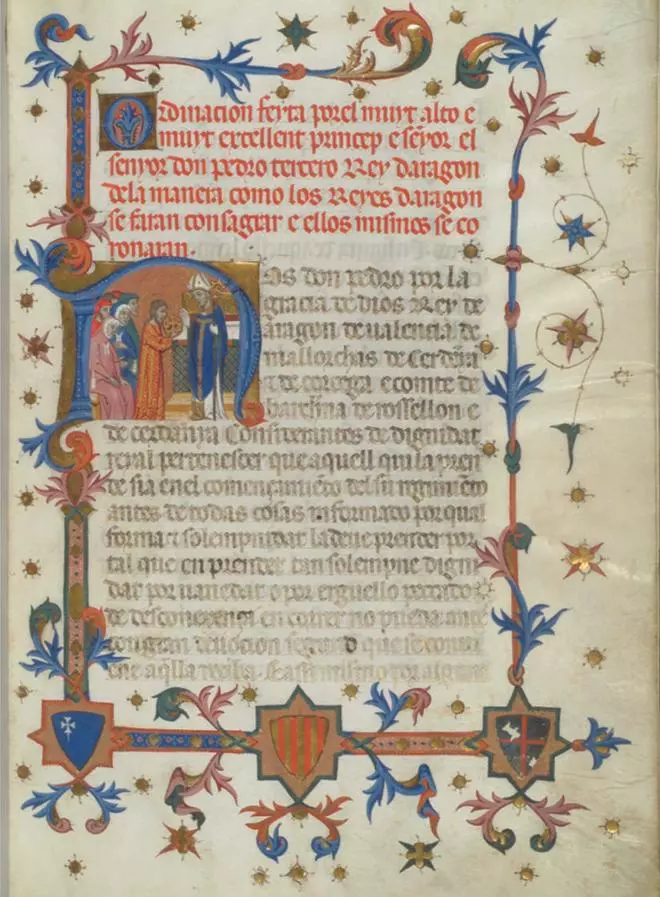 Ordinacion feyta por el muyt alto e
muyt excellent princep e senyor el
senyor don pedro tercero Rey daragon
dela manera como los Reyes daragon
se faran consagrar e ellos mismos se co
ronaran.
Nos don pedro por la
gracia de dios Rey de
aragon de valencia de
mallorchas de Cerdenya
e de corcega e comte de
barchna de rossellon e
de cerdanya Considerantes de dignidat
reyal pertenescer que aquell qui la pren
de sia en el començamiento del su regimiento
antes de todas cosas informado por qual
forma e solempnidat la deve prender por
tal que en prender tan solempne digni
dat por vanedat o por erguello
de en correr no pueda ante
con gran devocion segund que se convi
ene aqlla reciba. E assi mismo por